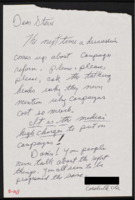 Dear Steve
The next time a discussion
comes up about Campaign
reform - please - please -
please, ask the talking
heads why they never
mention why campaigns
cost so much.
It is the media's
high charges to put on
campaigns!
Darn! you people
never talk about the right
things. You all seem to be
programed the same